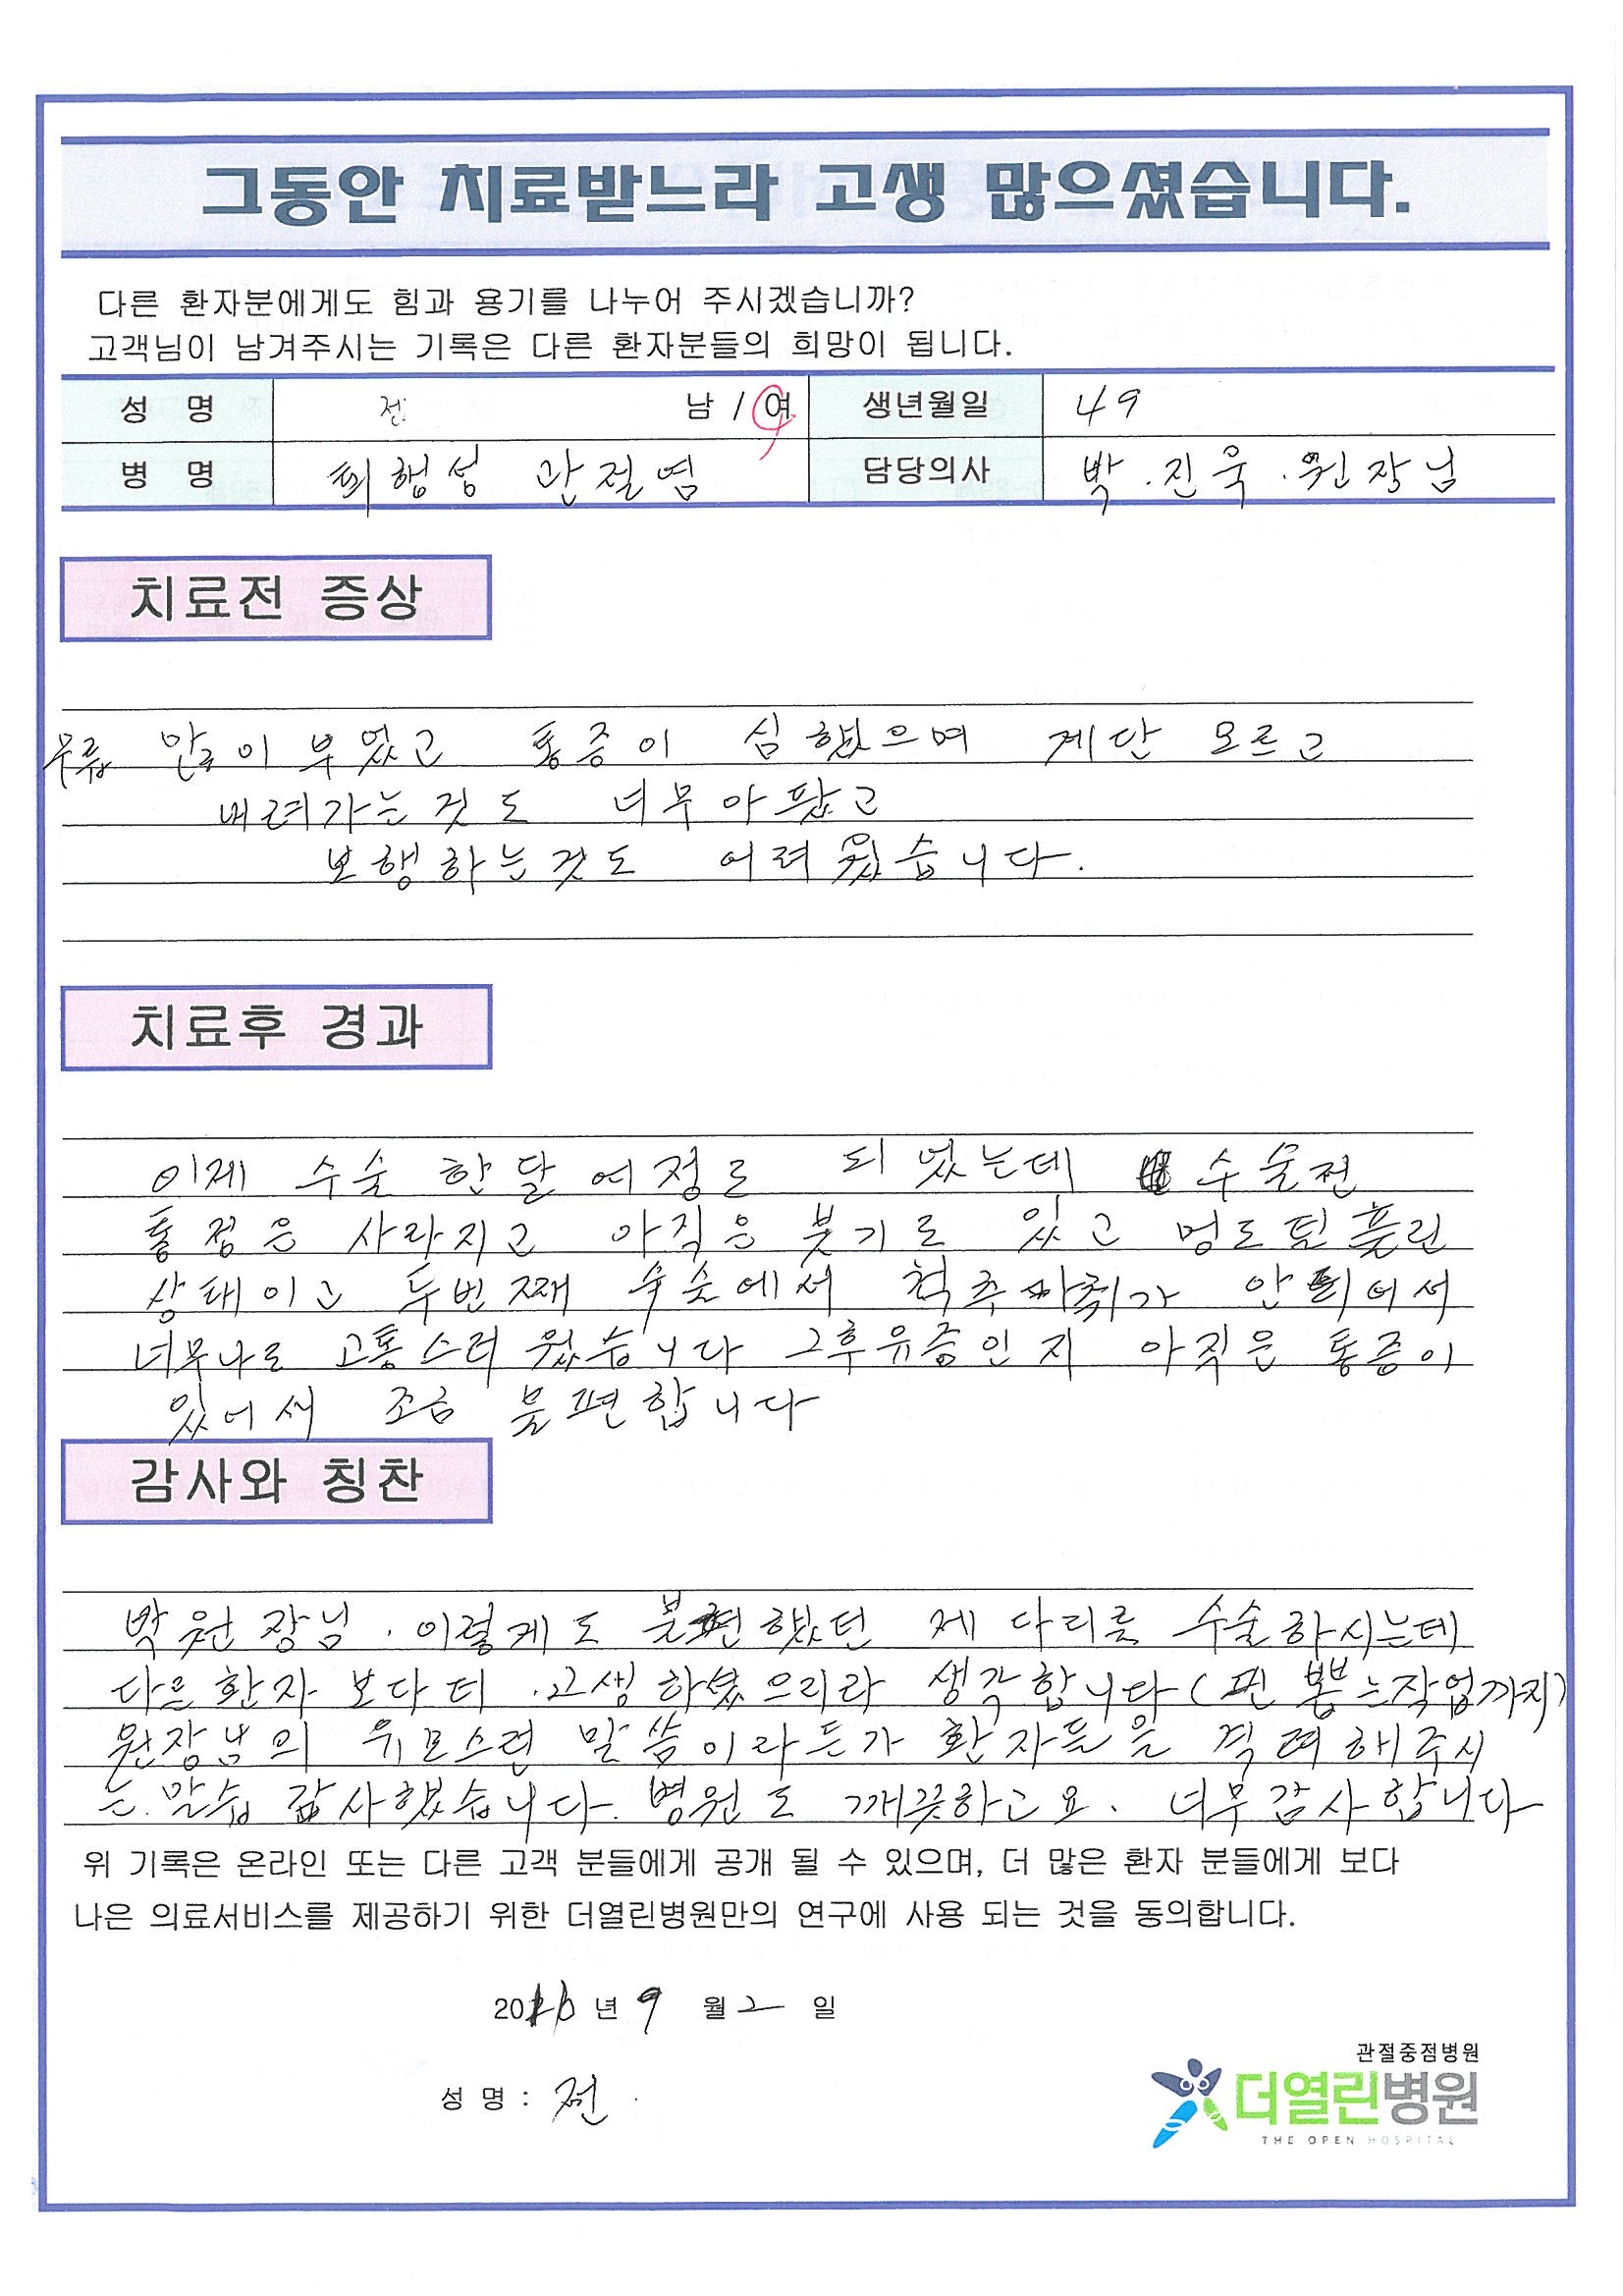 그동안 치료받느라 고생 많으셨습니다.
다른 환자분에게도 힘과 용기를 나누어 주시겠습니까?
고객님이 남겨주시는 기록은 다른 환자분들의 희망이 됩니다.
성 명 전 남 / 여 생년월일 49
병 명 퇴행성 관절염 담당의사 박. 진욱. 원장님
치료전 증상
무릎 많이 부었고 통증이 심했으며 계단 오르고
내려가는것도 너무 아팠고
보행하는것도 어려웠습니다.
치료후 경과
이제 수술 한달 여정도 되었는데 수술전
통점은 사라지고 아직은 붓기도 있고 멍도 덜풀린
상태이고 두번째 수술에서 척추마취가 안되어서
너무나도 고통스러웠습니다 그후유증인지 아직은 통증이
있어서 조금 불편합니다
감사와 칭찬
박원장님. 이렇게도 불편했던 제 다리를 수술하시는데
다른환자 보다 더. 고생하셨으리라 생각합니다 (핀 뽑는작업까지)
원장님의 유모스런 말씀이라든가 환자들을 격려해주시
는.말씀 감사했습니다. 병원도 깨끗하고요. 너무감사합니다
위 기록은 온라인 또는 다른 고객 분들에게 공개 될 수 있으며, 더 많은 환자 분들에게 보다
나은 의료서비스를 제공하기 위한 더열린병원만의 연구에 사용 되는 것을 동의합니다.
2016 년 9 월 2 일
성 명 : 전.
관절중점병원
더열린병원
THE OPEN HOSPITAL